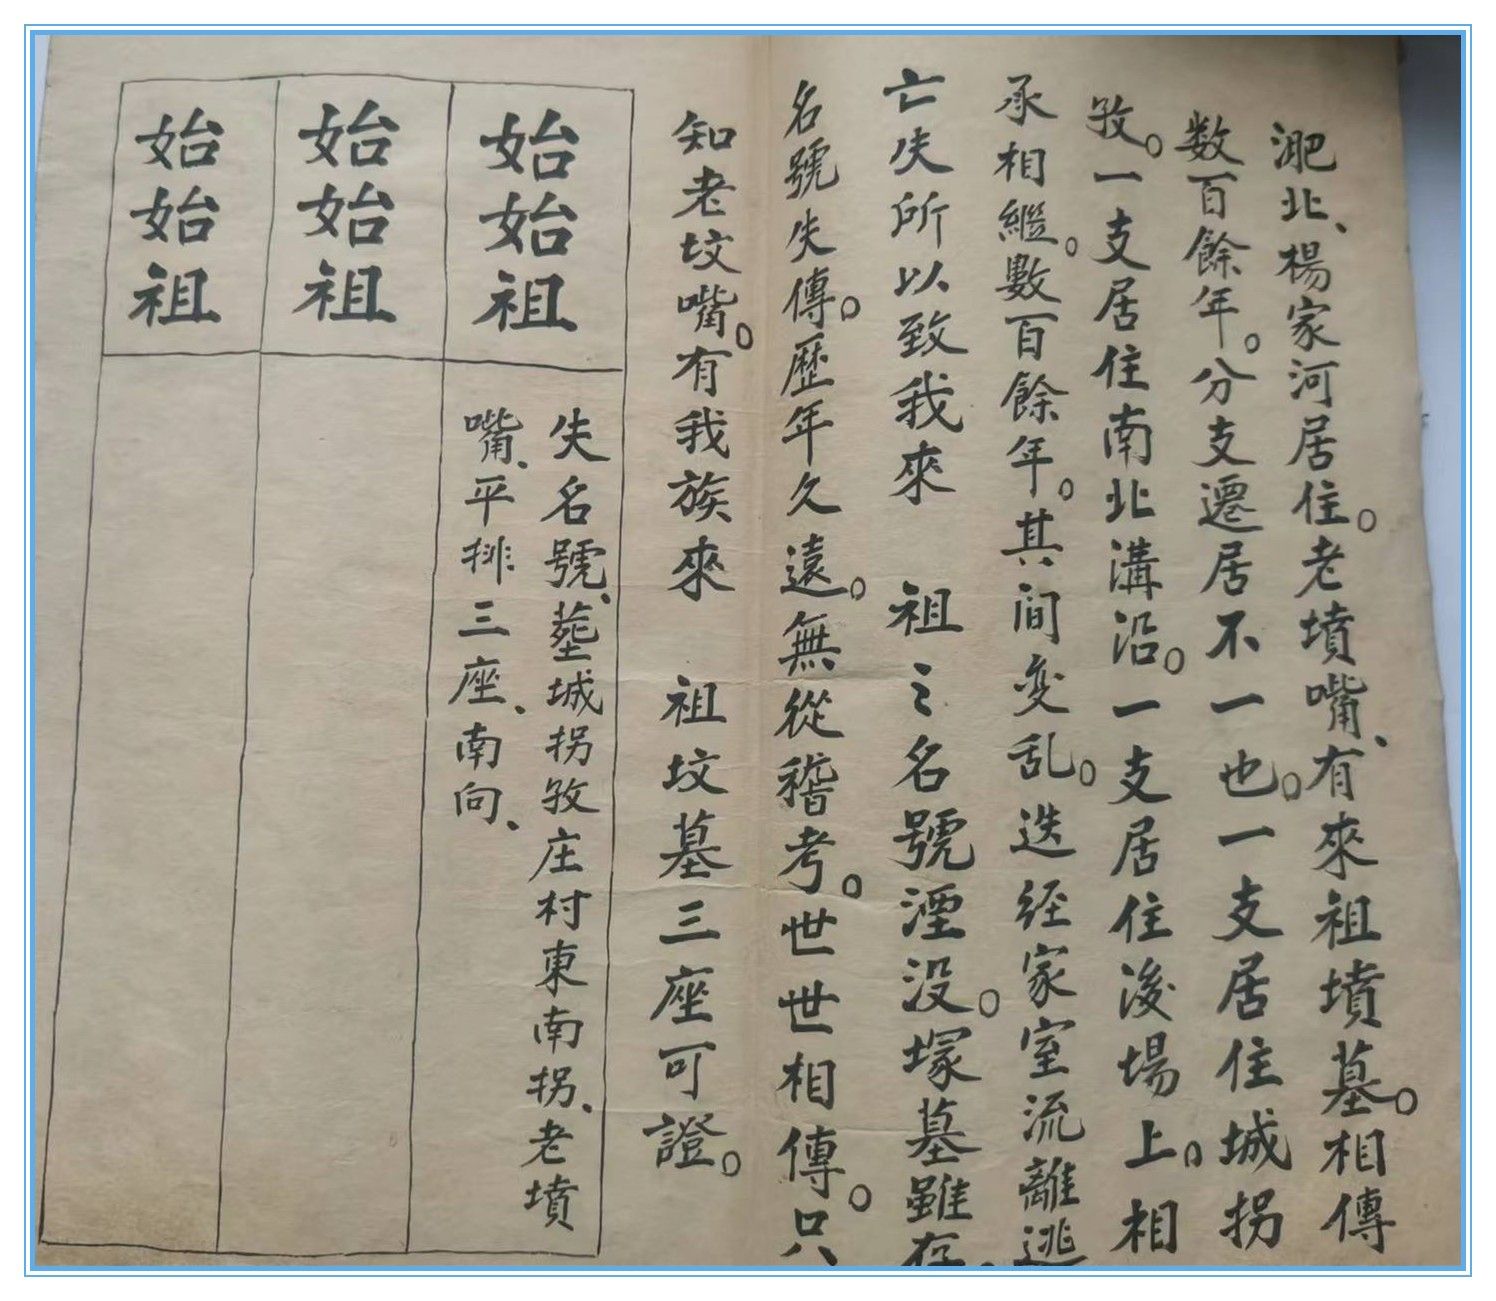 淝北、楊家河居住。老墳嘴、有來祖墳墓。相傳
数百餘年。分支遷居不一也。一支居住城拐
孜。一支居住南北溝沿。一支居住後場上。相
承相繼。數百餘年。其间变乱。迭经家室流離逃
亡失所以致我來 祖之名號湮没。塚墓雖存、
名號失傳。歷年久遠。無從稽考。世世相傳。只
知老坟嘴。有我族來 祖坟墓三座可證。
始始祖
失名號、塟城拐孜庄村東南拐、老墳
嘴、平排三座、南向、
始始祖
始始祖